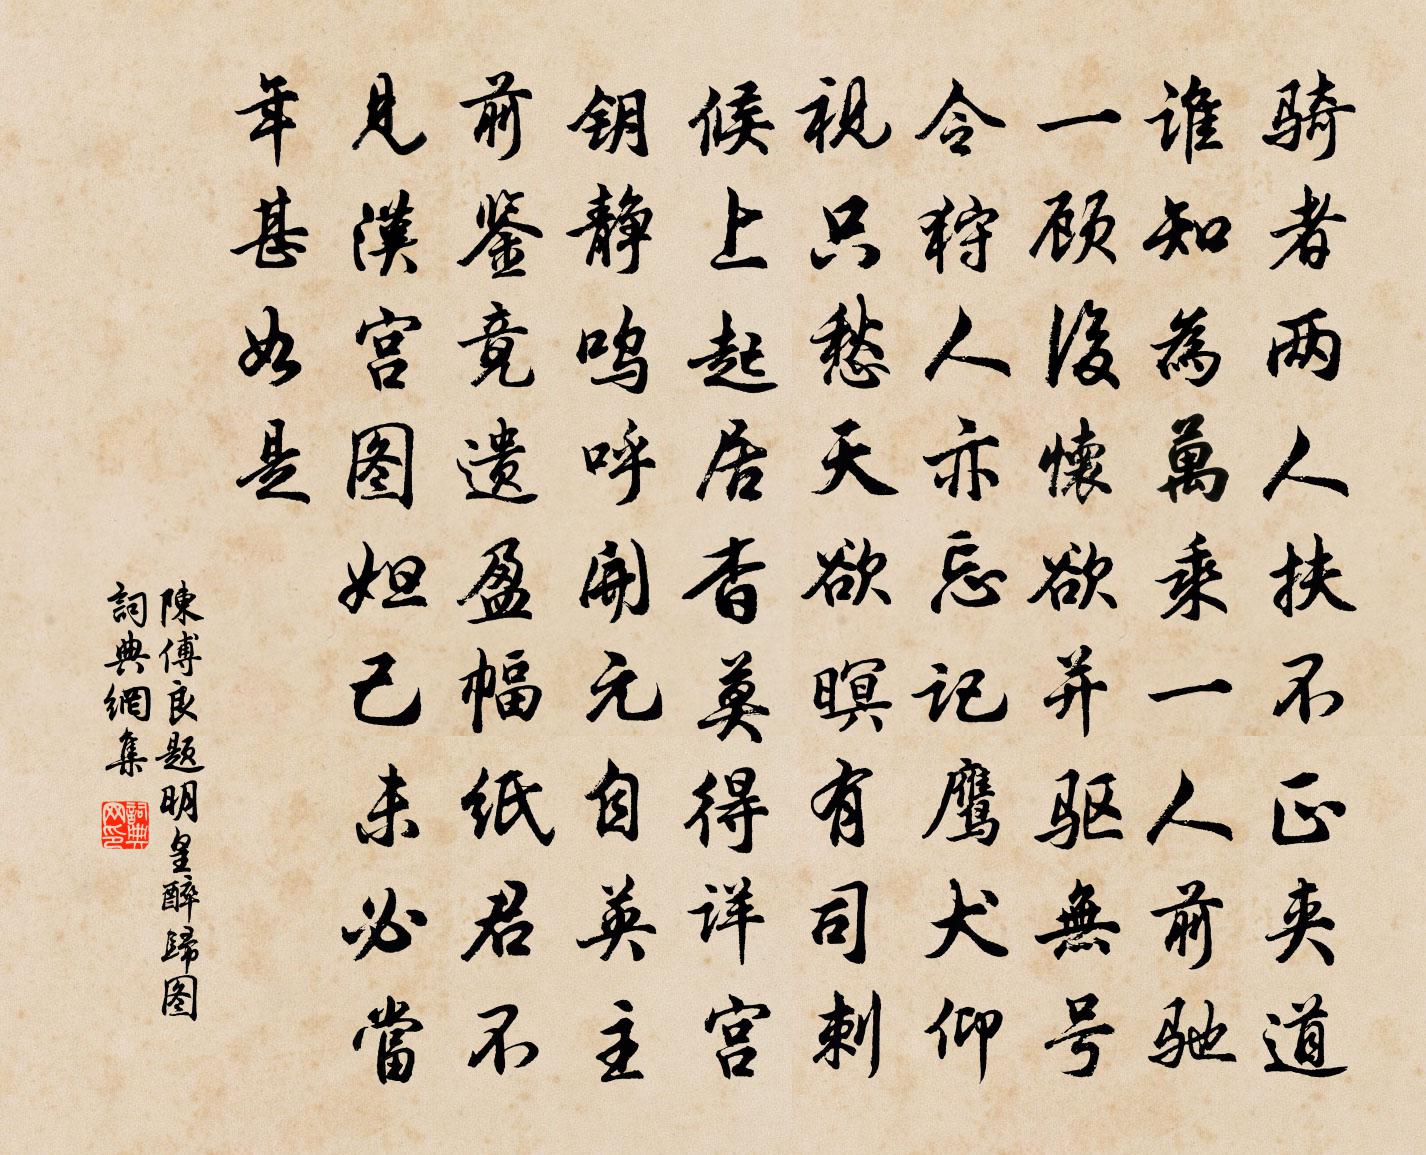 骑者两人扶不正夹道
谁知為萬乘一人前驰
一顾後懷欲并驱無号
令狩人亦忘记鹰犬仰
視只愁天欲暝有司刺
候上起居杳莫得详宫
钥静鸣呼開元自英主
前鉴竟遗盈幅纸君不
見漢宫图妲己未必當
年甚如是
陳傅良题明皇醉歸图
詞典網集